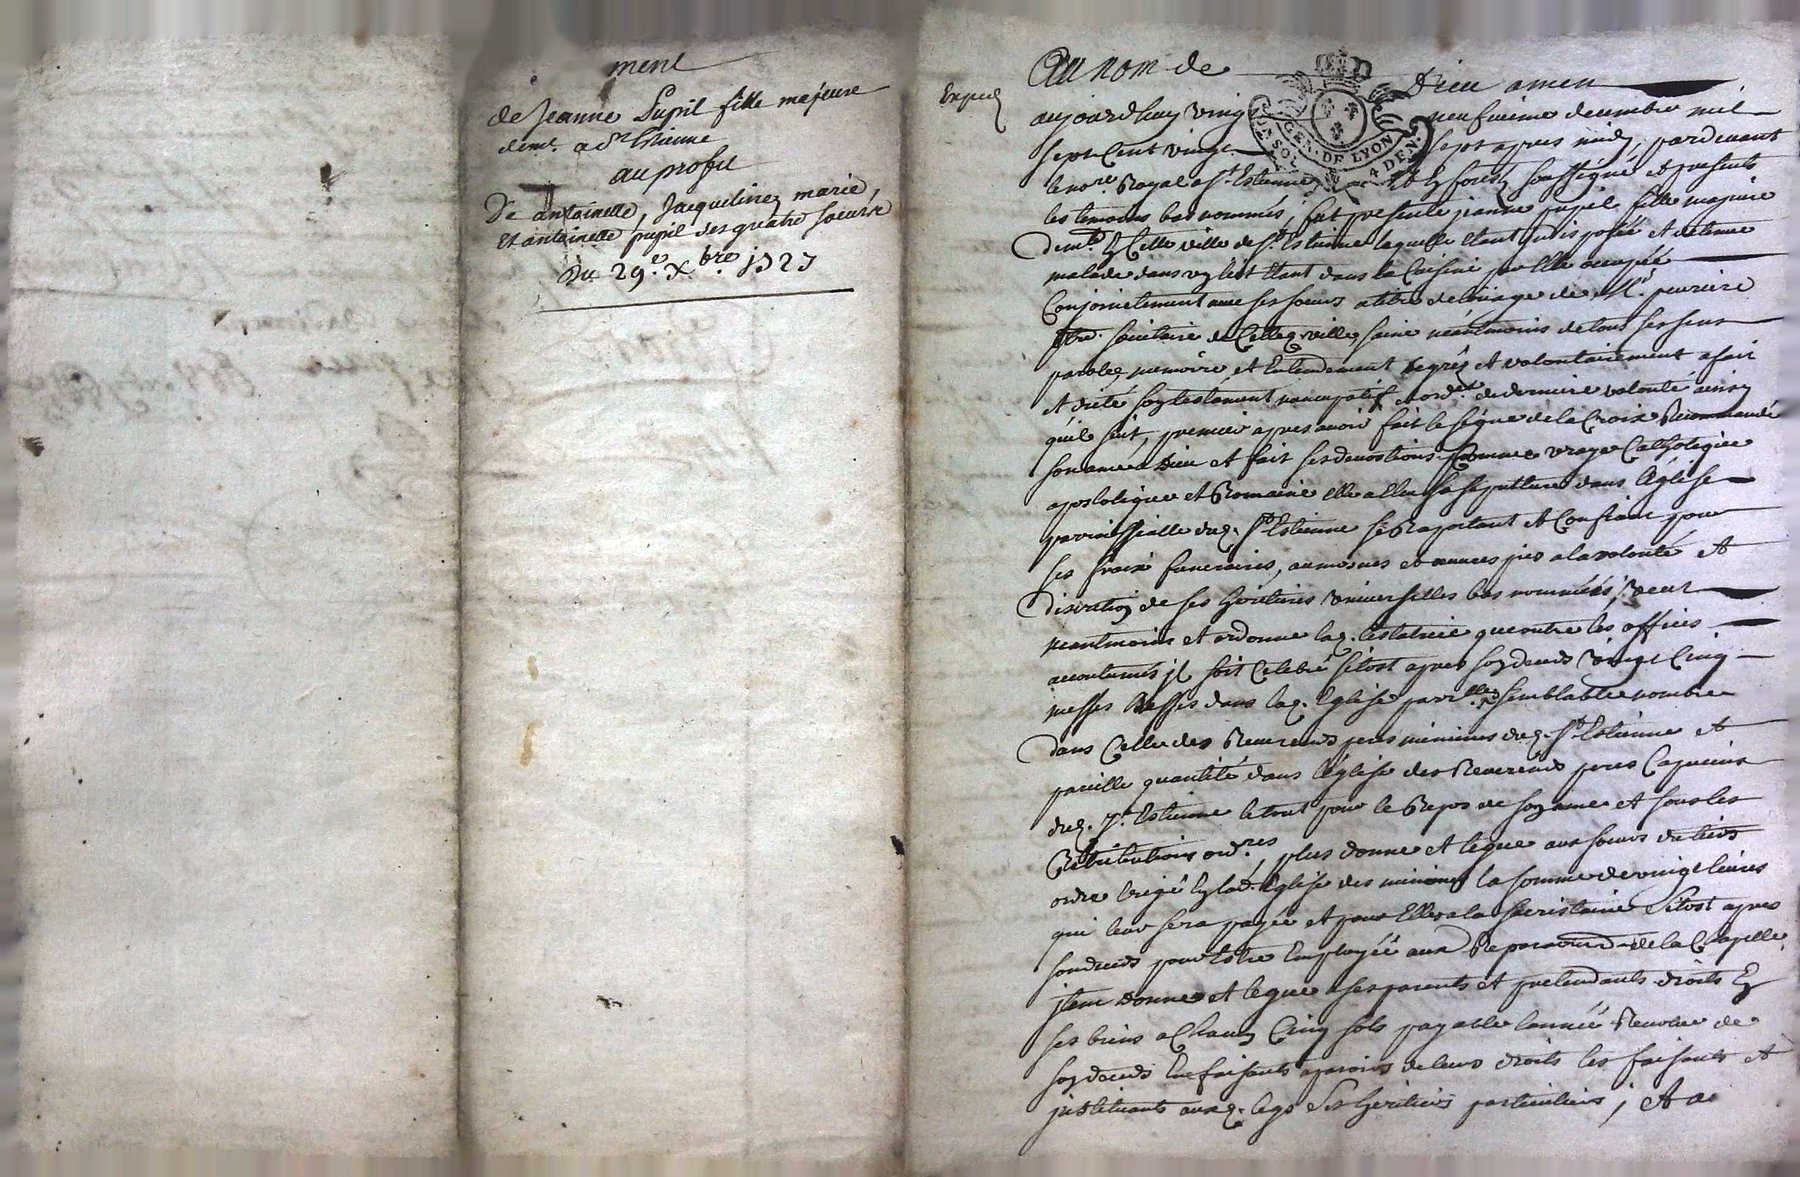 ment
de Jeanne Pupil fille majeure
demt. a St Estienne
au profit
De antoinette, Jacqueline, marie,
et antoinette pupil ses quatre soeurs
Du 29e. Xbre 1727
Exped
Au nom de Dieu amen
aujourdhuy vingt neufvieme decembre mil
sept cent vingt sept apres midy, pardevant
le nore. Royal a St. Estienne en forest soussigné et presents
les temoins bas nommés, fut presente jeanne pupil fille majeure
demte. en cette ville de St. Estienne laquelle etant indisposée et detenue
malade dans un lit etant dans la cuisine par elle occupée
conjointement avec ses soeurs a titre de louage de Mr. peuriere
ptre. societaire de cette ville, saine neantmoins de tous ses sens
parole, memoire et entendement de gré et volontairement a fait
et dicté son testament nuncupatif et ord. de derniere volonté ainsy
quil suit, premier apres avoir fait le signe de la Croix Recommandé
son ame a Dieu et fait ses devostions comme vraye Catholique
apostolique et Romaine elle a elleu sa sepulture dans l'église
parroissialle dud. St. Estienne se Raportant et confiant pour
ses fraix funeraires, aumosnes et oeuvres pies a la volonté et
discretion de ses heritieres universelles bas nommées, veut
neantmoins et ordonne lad. testatrice que outre les offices
accoutumés il soit celebré sitost apres son deceds vingt cinq
messes basses dans lad. Eglise parrlle. semblable nombre
dans celle des Reverends peres minimes dud. St. Estienne et
pareille quantité dans l'église des Reverends peres Capucins
dud. St. Estienne le tout pour le Repos de son ame et sous les
Retributions ordres, plus donne et legue aux soeurs du tiers
ordre erigé en lad. Eglise des minimes la somme de vingt livres
qui leur sera payée et pour elles a la sacristaine sitost apres
son deceds pour estre employée aux Reparaons. de la Chapelle,
item donne et legue a ses parents et pretendants droits en
ses biens a chacun cinq sols payable l'année Revolue de
son deceds en faisants aparoir de leurs droits les faisants et
instituants auxd. legs ses heritiers particuliers, et au